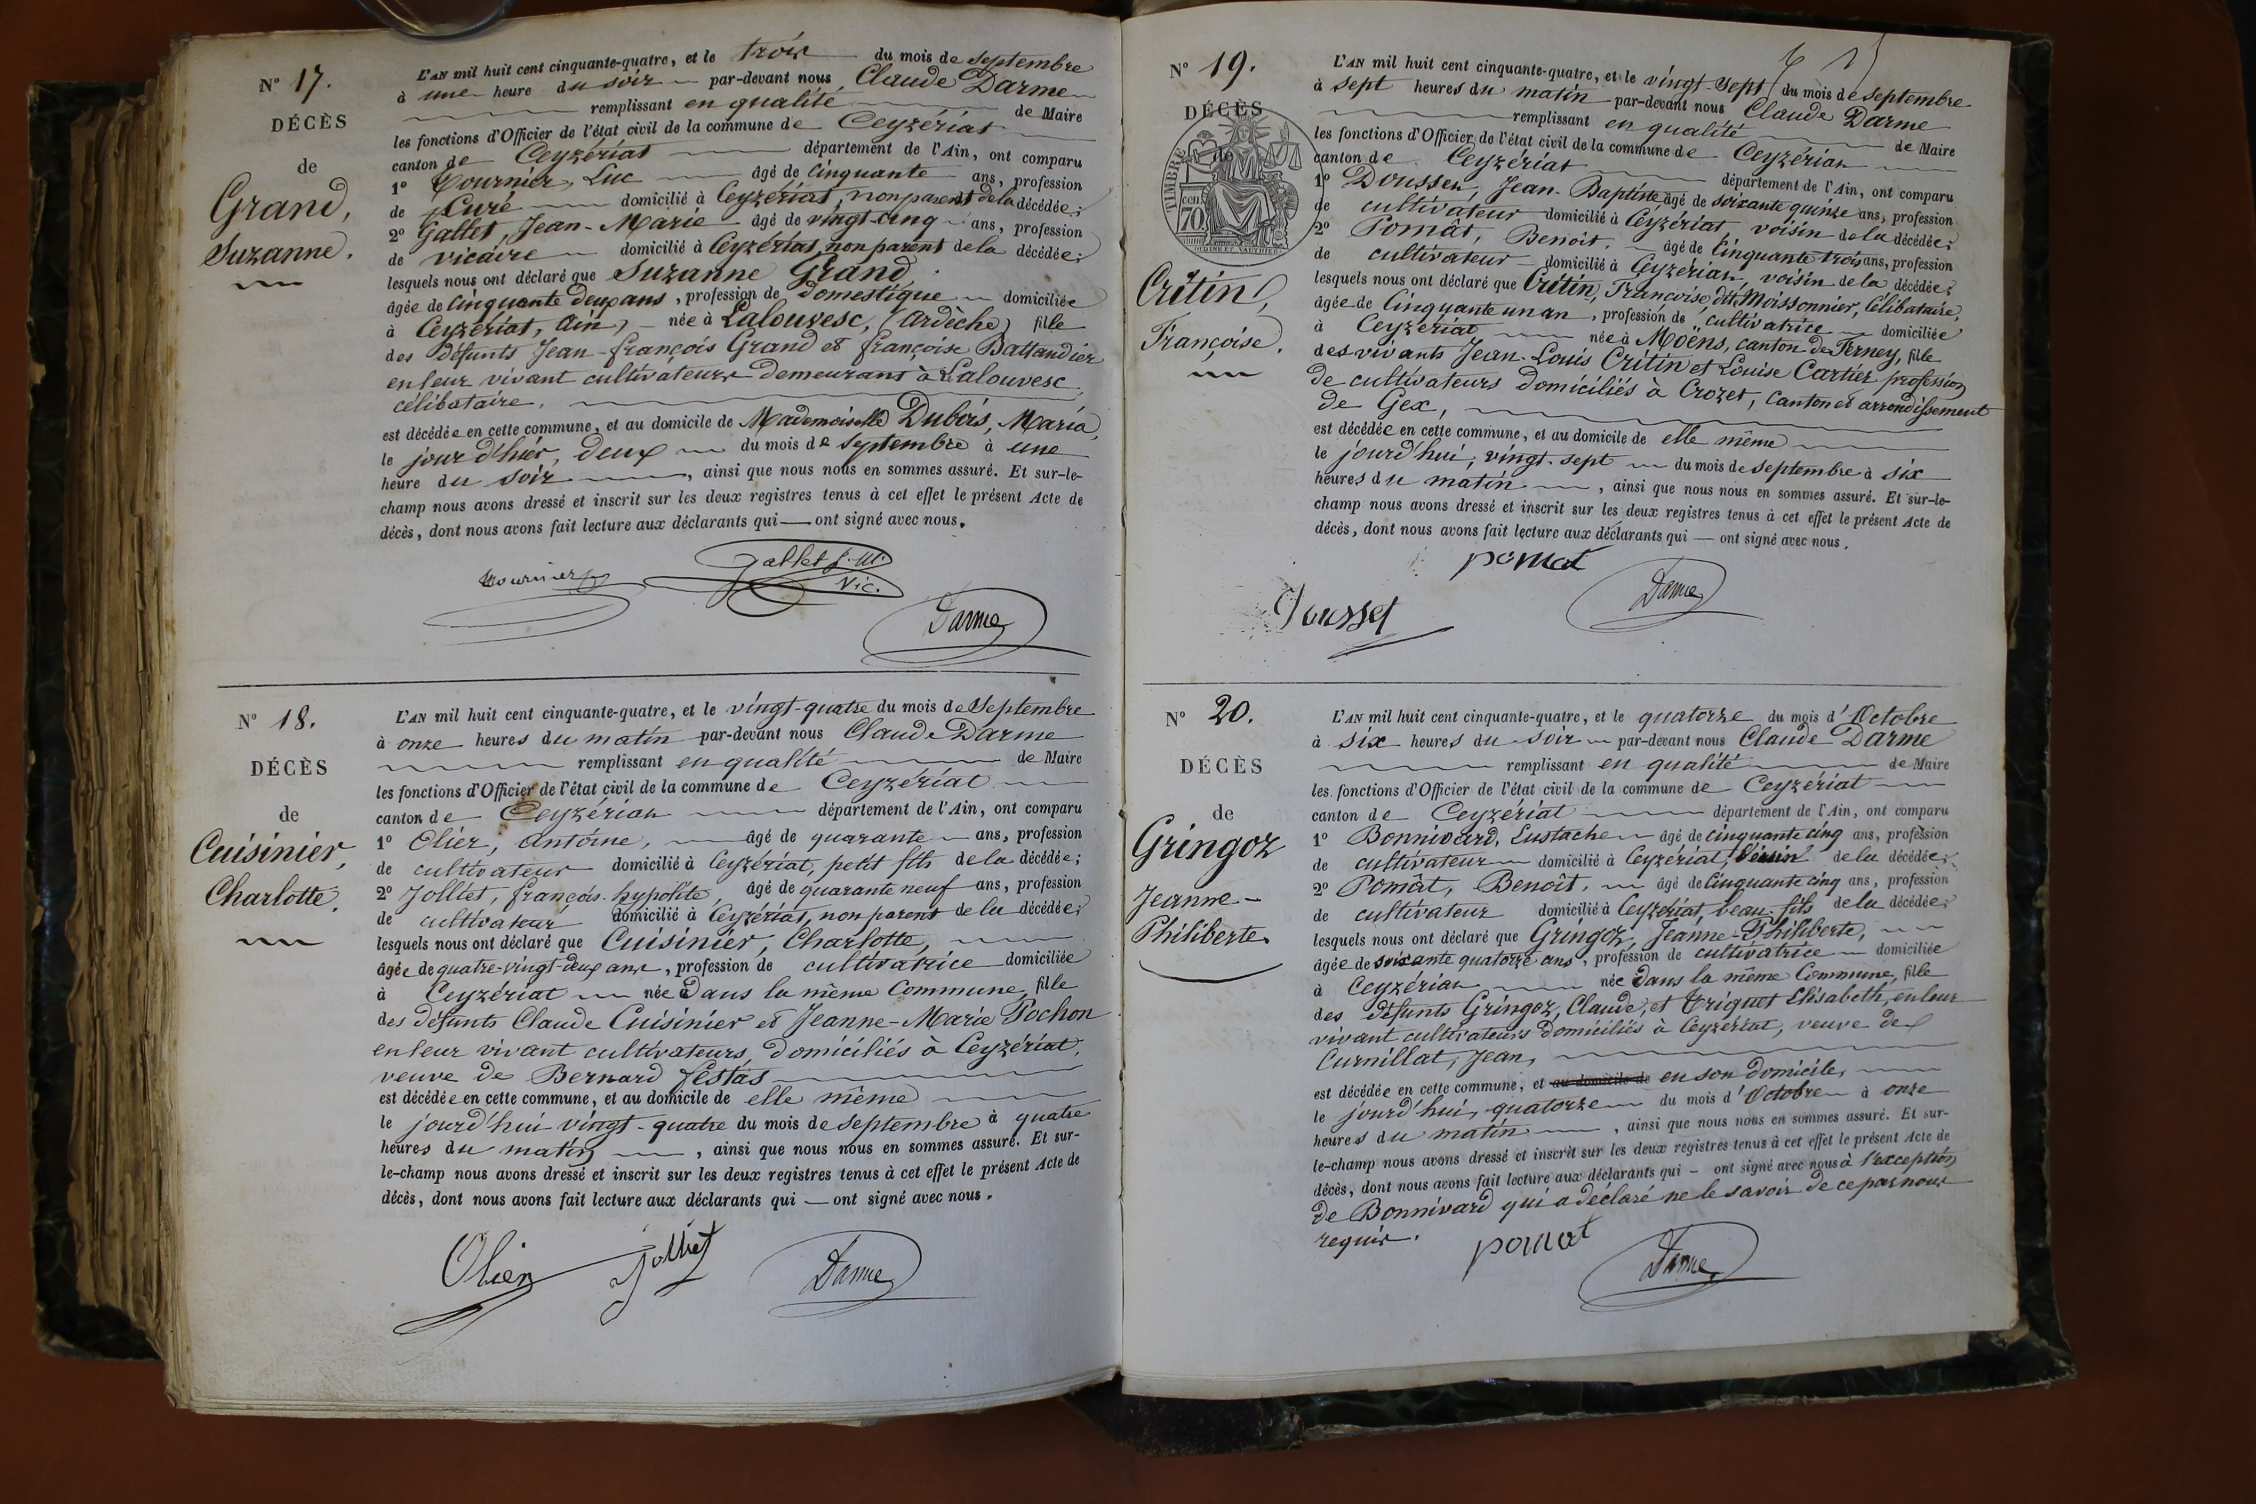 N° 17.
DÉCÈS
de
Grand,
Suzanne.
L'AN mil huit cent cinquante-quatre, et le trois du mois de septembre
à une heure du soir par-devant nous Claude Darme
remplissant en qualité de Maire
les fonctions d'Officier de l'état civil de la commune de Ceyzériat
canton de Ceyzériat département de l'Ain, ont comparu
1° Tournier, Luc âgé de cinquante ans, profession
de Curé domicilié à Ceyzériat, non parent de la décédée;
2° Gallet, Jean-Marie âgé de vingt-cinq ans, profession
de vicaire domicilié à Ceyzériat, non parent de la décédée;
lesquels nous ont déclaré que Suzanne Grand,
âgée de cinquante deux ans, profession de domestique domiciliée
à Ceyzériat, Ain, née à Lalouvesc, (Ardèche) fille
des défunts Jean-françois Grand et françoise Battandier
en leur vivant cultivateurs demeurant à Lalouvesc,
célibataire.
est décédée en cette commune, et au domicile de Mademoiselle Dubois, Maria,
le jour d'hier, deux du mois de septembre à une
heure du soir, ainsi que nous nous en sommes assuré. Et sur-le-
champ nous avons dressé et inscrit sur les deux registres tenus à cet effet le présent Acte de
décès, dont nous avons fait lecture aux déclarants qui — ont signé avec nous.
Tournier
Gallet J. M.
Vic.
Darme
N° 18.
DÉCÈS
de
Cuisinier,
Charlotte.
L'AN mil huit cent cinquante-quatre, et le vingt-quatre du mois de Septembre
à onze heures du matin par-devant nous Claude Darme
remplissant en qualité de Maire
les fonctions d'Officier de l'état civil de la commune de Ceyzériat
canton de Ceyzériat département de l'Ain, ont comparu
1° Olier, Antoine, âgé de quarante ans, profession
de cultivateur domicilié à Ceyzériat, petit fils de la décédée;
2° Jolliet, françois-hypolite, âgé de quarante neuf ans, profession
de cultivateur domicilié à Ceyzériat, non parent de la décédée;
lesquels nous ont déclaré que Cuisinier, Charlotte,
âgée de quatre-vingt-deux ans, profession de cultivatrice domiciliée
à Ceyzériat née à Dans la même Commune, fille
des défunts Claude Cuisinier et Jeanne-Marie Pochon
en leur vivant cultivateurs, domiciliés à Ceyzériat,
veuve de Bernard festas
est décédée en cette commune, et au domicile de elle même
le jourd'hui vingt-quatre du mois de septembre à quatre
heures du matin, ainsi que nous nous en sommes assuré. Et sur-
le-champ nous avons dressé et inscrit sur les deux registres tenus à cet effet le présent Acte de
décès, dont nous avons fait lecture aux déclarants qui — ont signé avec nous.
Olier
Jolliet
Darme
N° 19.
DÉCÈS
de
TIMBRE
70
Critin,
Françoise.
L'AN mil huit cent cinquante-quatre, et le vingt-sept du mois de septembre
à sept heures du matin par-devant nous Claude Darme
remplissant en qualité de Maire
les fonctions d'Officier de l'état civil de la commune de Ceyzériat
canton de Ceyzériat département de l'Ain, ont comparu
1° Dousset, Jean-Baptiste âgé de soixante quinze ans, profession
de cultivateur domicilié à Ceyzériat, voisin de la décédée;
2° Pomât, Benoît, âgé de cinquante trois ans, profession
de cultivateur domicilié à Ceyzériat, voisin de la décédée;
lesquels nous ont déclaré que Critin, Françoise, dite Moissonnier, Célibataire,
âgée de Cinquante un an, profession de cultivatrice domiciliée
à Ceyzériat née à Moëns, canton de Ferney, fille
des vivants Jean-Louis Critin et Louise Cartier profession
de cultivateurs domiciliés à Crozet, Canton et arrondissement
de Gex,
est décédée en cette commune, et au domicile de elle même
le jourd'hui, vingt-sept du mois de septembre à six
heures du matin, ainsi que nous nous en sommes assuré. Et sur-le-
champ nous avons dressé et inscrit sur les deux registres tenus à cet effet le présent Acte de
décès, dont nous avons fait lecture aux déclarants qui — ont signé avec nous.
pomat
Dousset
Darme
N° 20.
DÉCÈS
de
Gringoz
Jeanne-
Philiberte.
L'AN mil huit cent cinquante-quatre, et le quatorze du mois d'Octobre
à six heures du soir par-devant nous Claude Darme
remplissant en qualité de Maire
les fonctions d'Officier de l'état civil de la commune de Ceyzériat
canton de Ceyzériat département de l'Ain, ont comparu
1° Bonnivard, Eustache âgé de cinquante cinq ans, profession
de cultivateur domicilié à Ceyzériat, Voisin de la décédée;
2° Pomât, Benoît, âgé de Cinquante cinq ans, profession
de cultivateur domicilié à Ceyzériat, beau-fils de la décédée;
lesquels nous ont déclaré que Gringoz, Jeanne-Philiberte,
âgée de soixante quatorze ans, profession de cultivatrice domiciliée
à Ceyzériat née Dans la même Commune, fille
des défunts Gringoz, Claude, et Triquet Elisabeth, en leur
vivant cultivateurs domiciliés à Ceyzériat, veuve de
Curnillat, Jean,
est décédée en cette commune, et au domicile de en son domicile,
le jourd'hui, quatorze du mois d'Octobre à onze
heures du matin, ainsi que nous nous en sommes assuré. Et sur-
le-champ nous avons dressé et inscrit sur les deux registres tenus à cet effet le présent Acte de
décès, dont nous avons fait lecture aux déclarants qui - ont signé avec nous à l'exception
de Bonnivard qui a déclaré ne le savoir de ce par nous
requis.
pomat
Darme